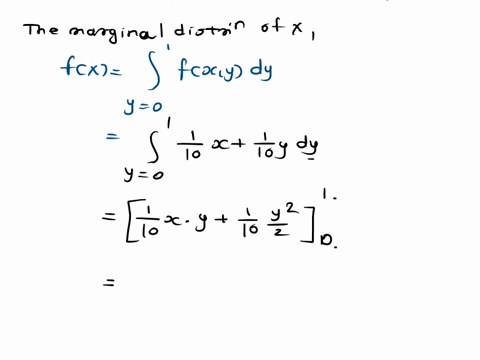 The marginal distrin of x,
f(x) = ∫_{y=0}^{1} f(x,y) dy
= ∫_{y=0}^{1} 1/10 x + 1/10 y dy
= [1/10 x · y + 1/10 y²/2]_{0.}^{1.}
=